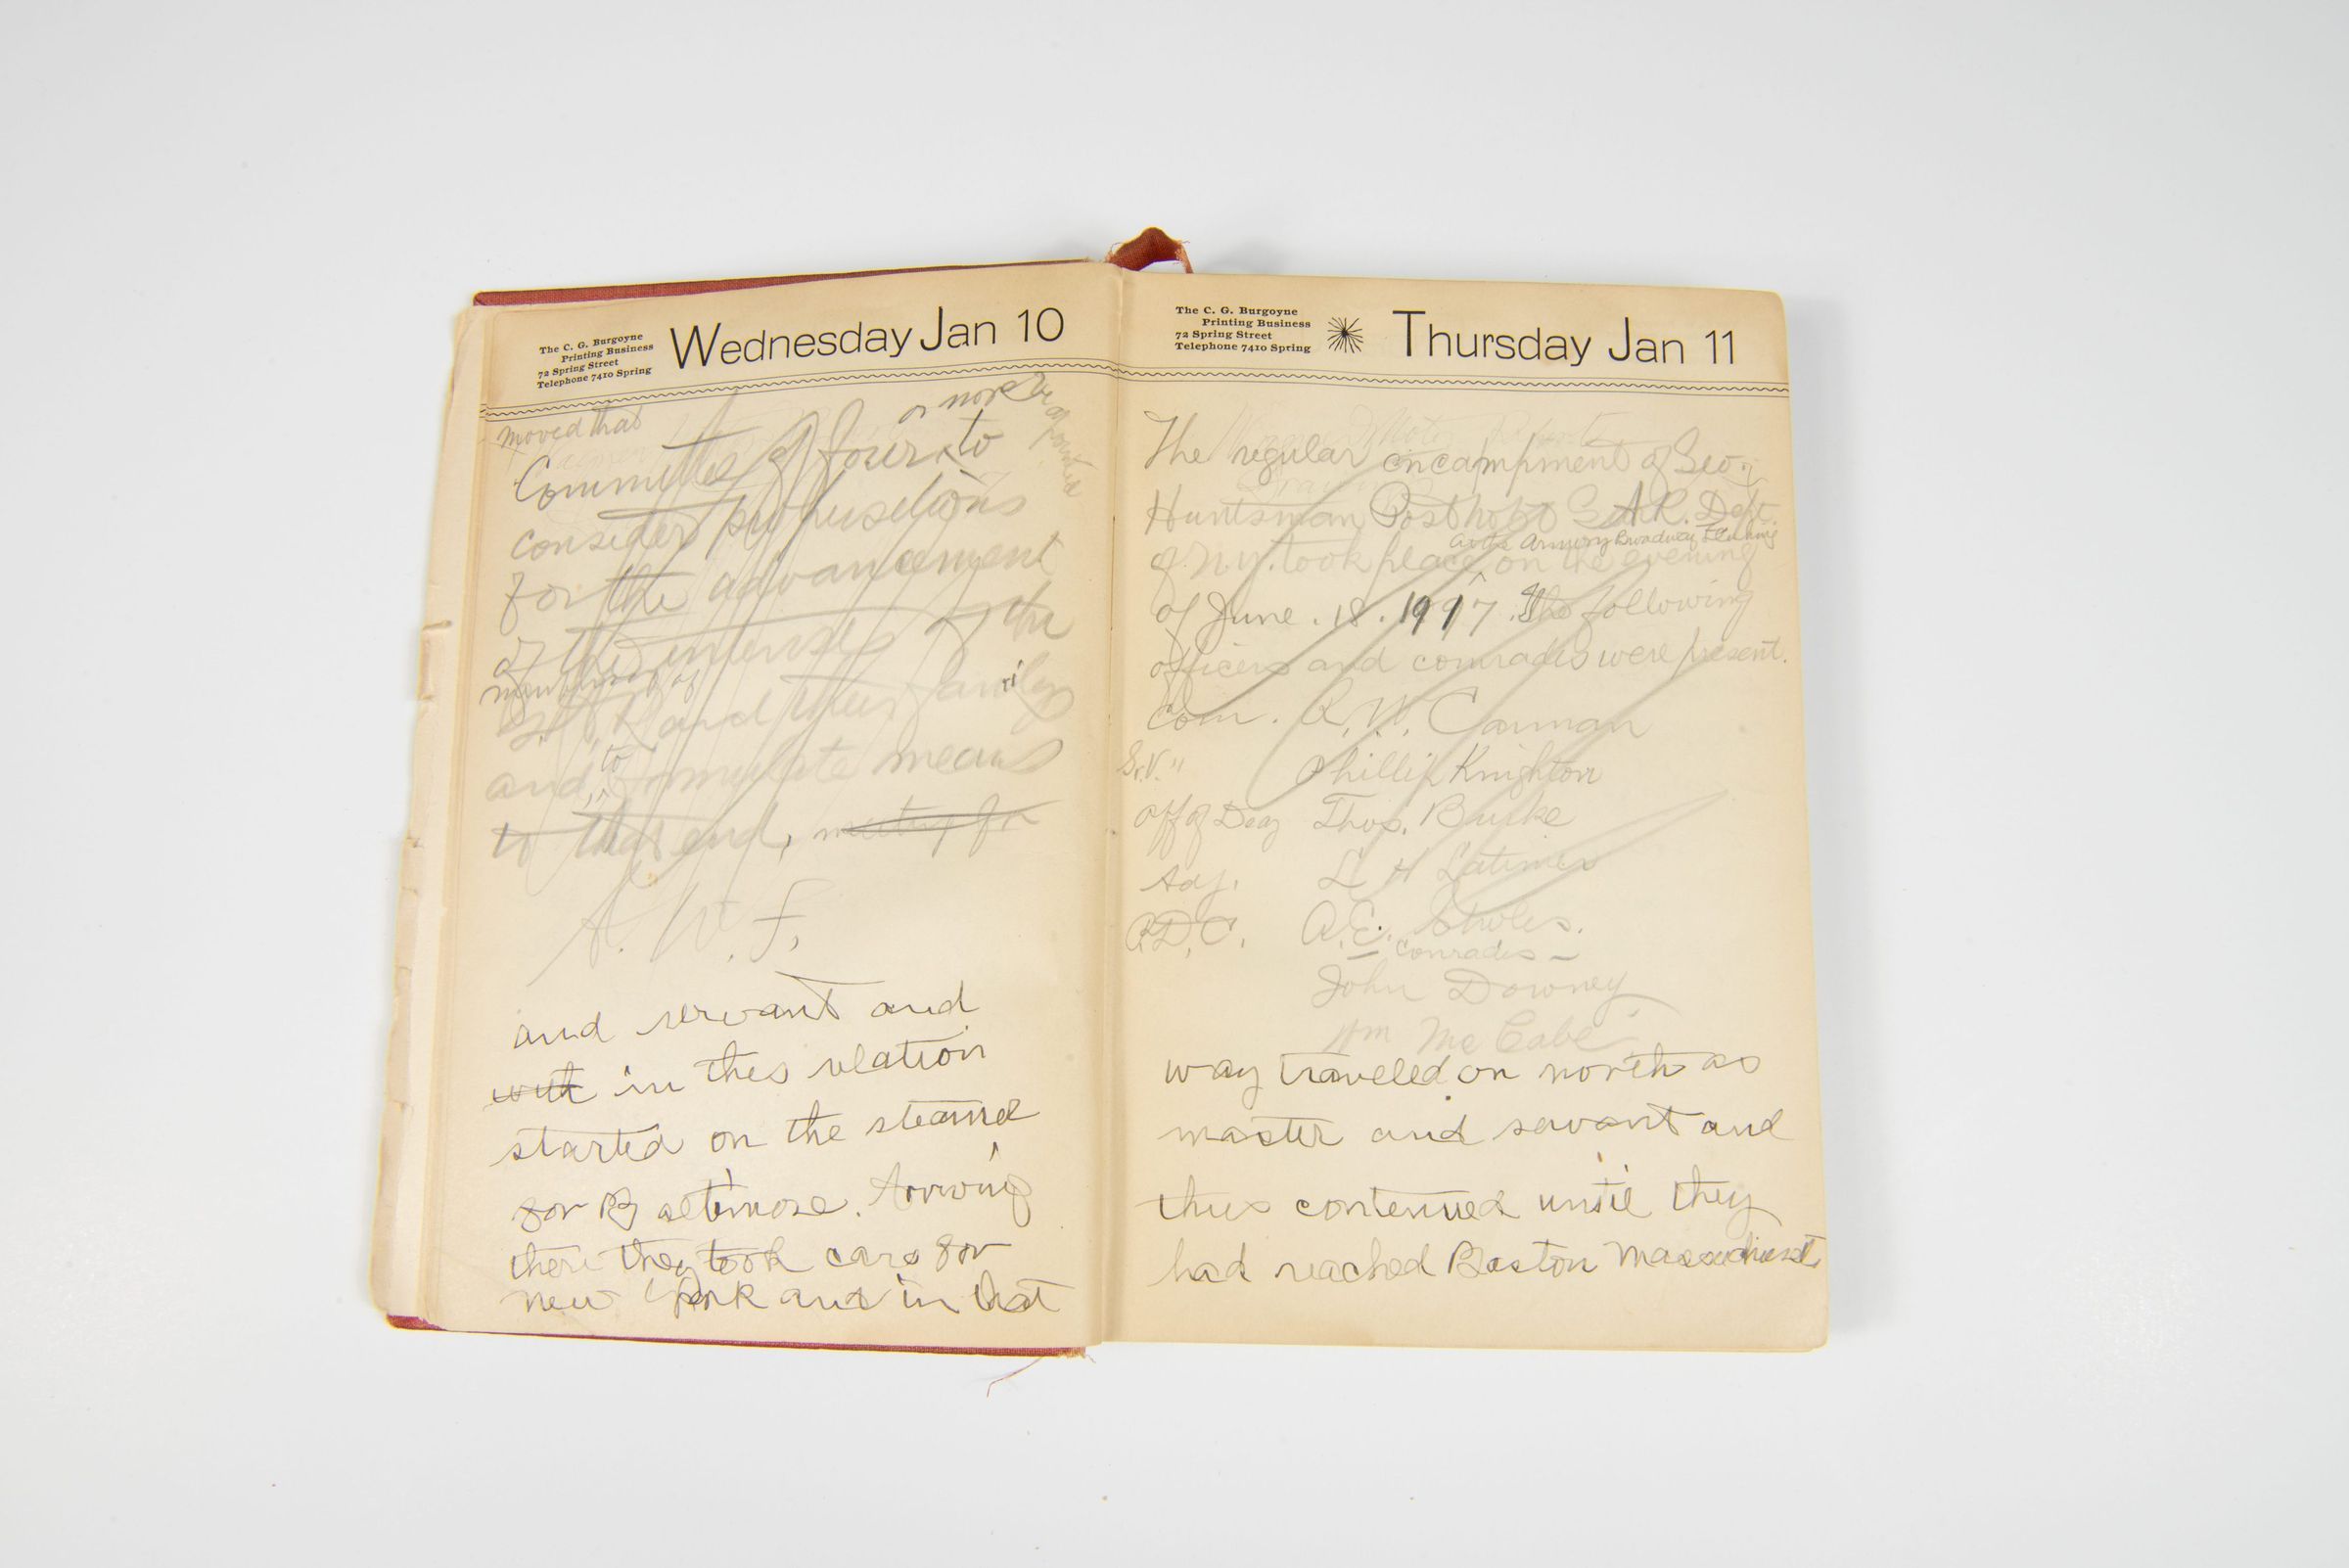 The C. G. Burgoyne
Printing Business
72 Spring Street
Telephone 7410 Spring
Wednesday Jan 10
moved that
or more be appointed
Committee of four to
consider propusitions
for the advancement
of the interests of the
members of
G.A.R. and their family
and to formulate means
to that end, meeting for
A. W. F.
and servant and
with in thes relation
started on the steamer
for Baltimore. Arriving
there they took cars for
new York and in that
The C. G. Burgoyne
Printing Business
72 Spring Street
Telephone 7410 Spring
Thursday Jan 11
The regular encampment of Geo.
Huntsman Post G.A.R. Dept.
at the Armory Broadway Flushing
of N.Y. took place on the evening
of June. 18. 1917. The following
officers and comrades were present.
Com. R. W. Carman
Sr.V. " Phillip Knighton
Off of Day Thos. Burke
Adj. L H Latimer
A.D.C. A.E. Sholes.
Comrades
John Downey
Wm McCabe
way traveled on north as
master and servant and
thus contenued until they
had reached Boston Massachusetts